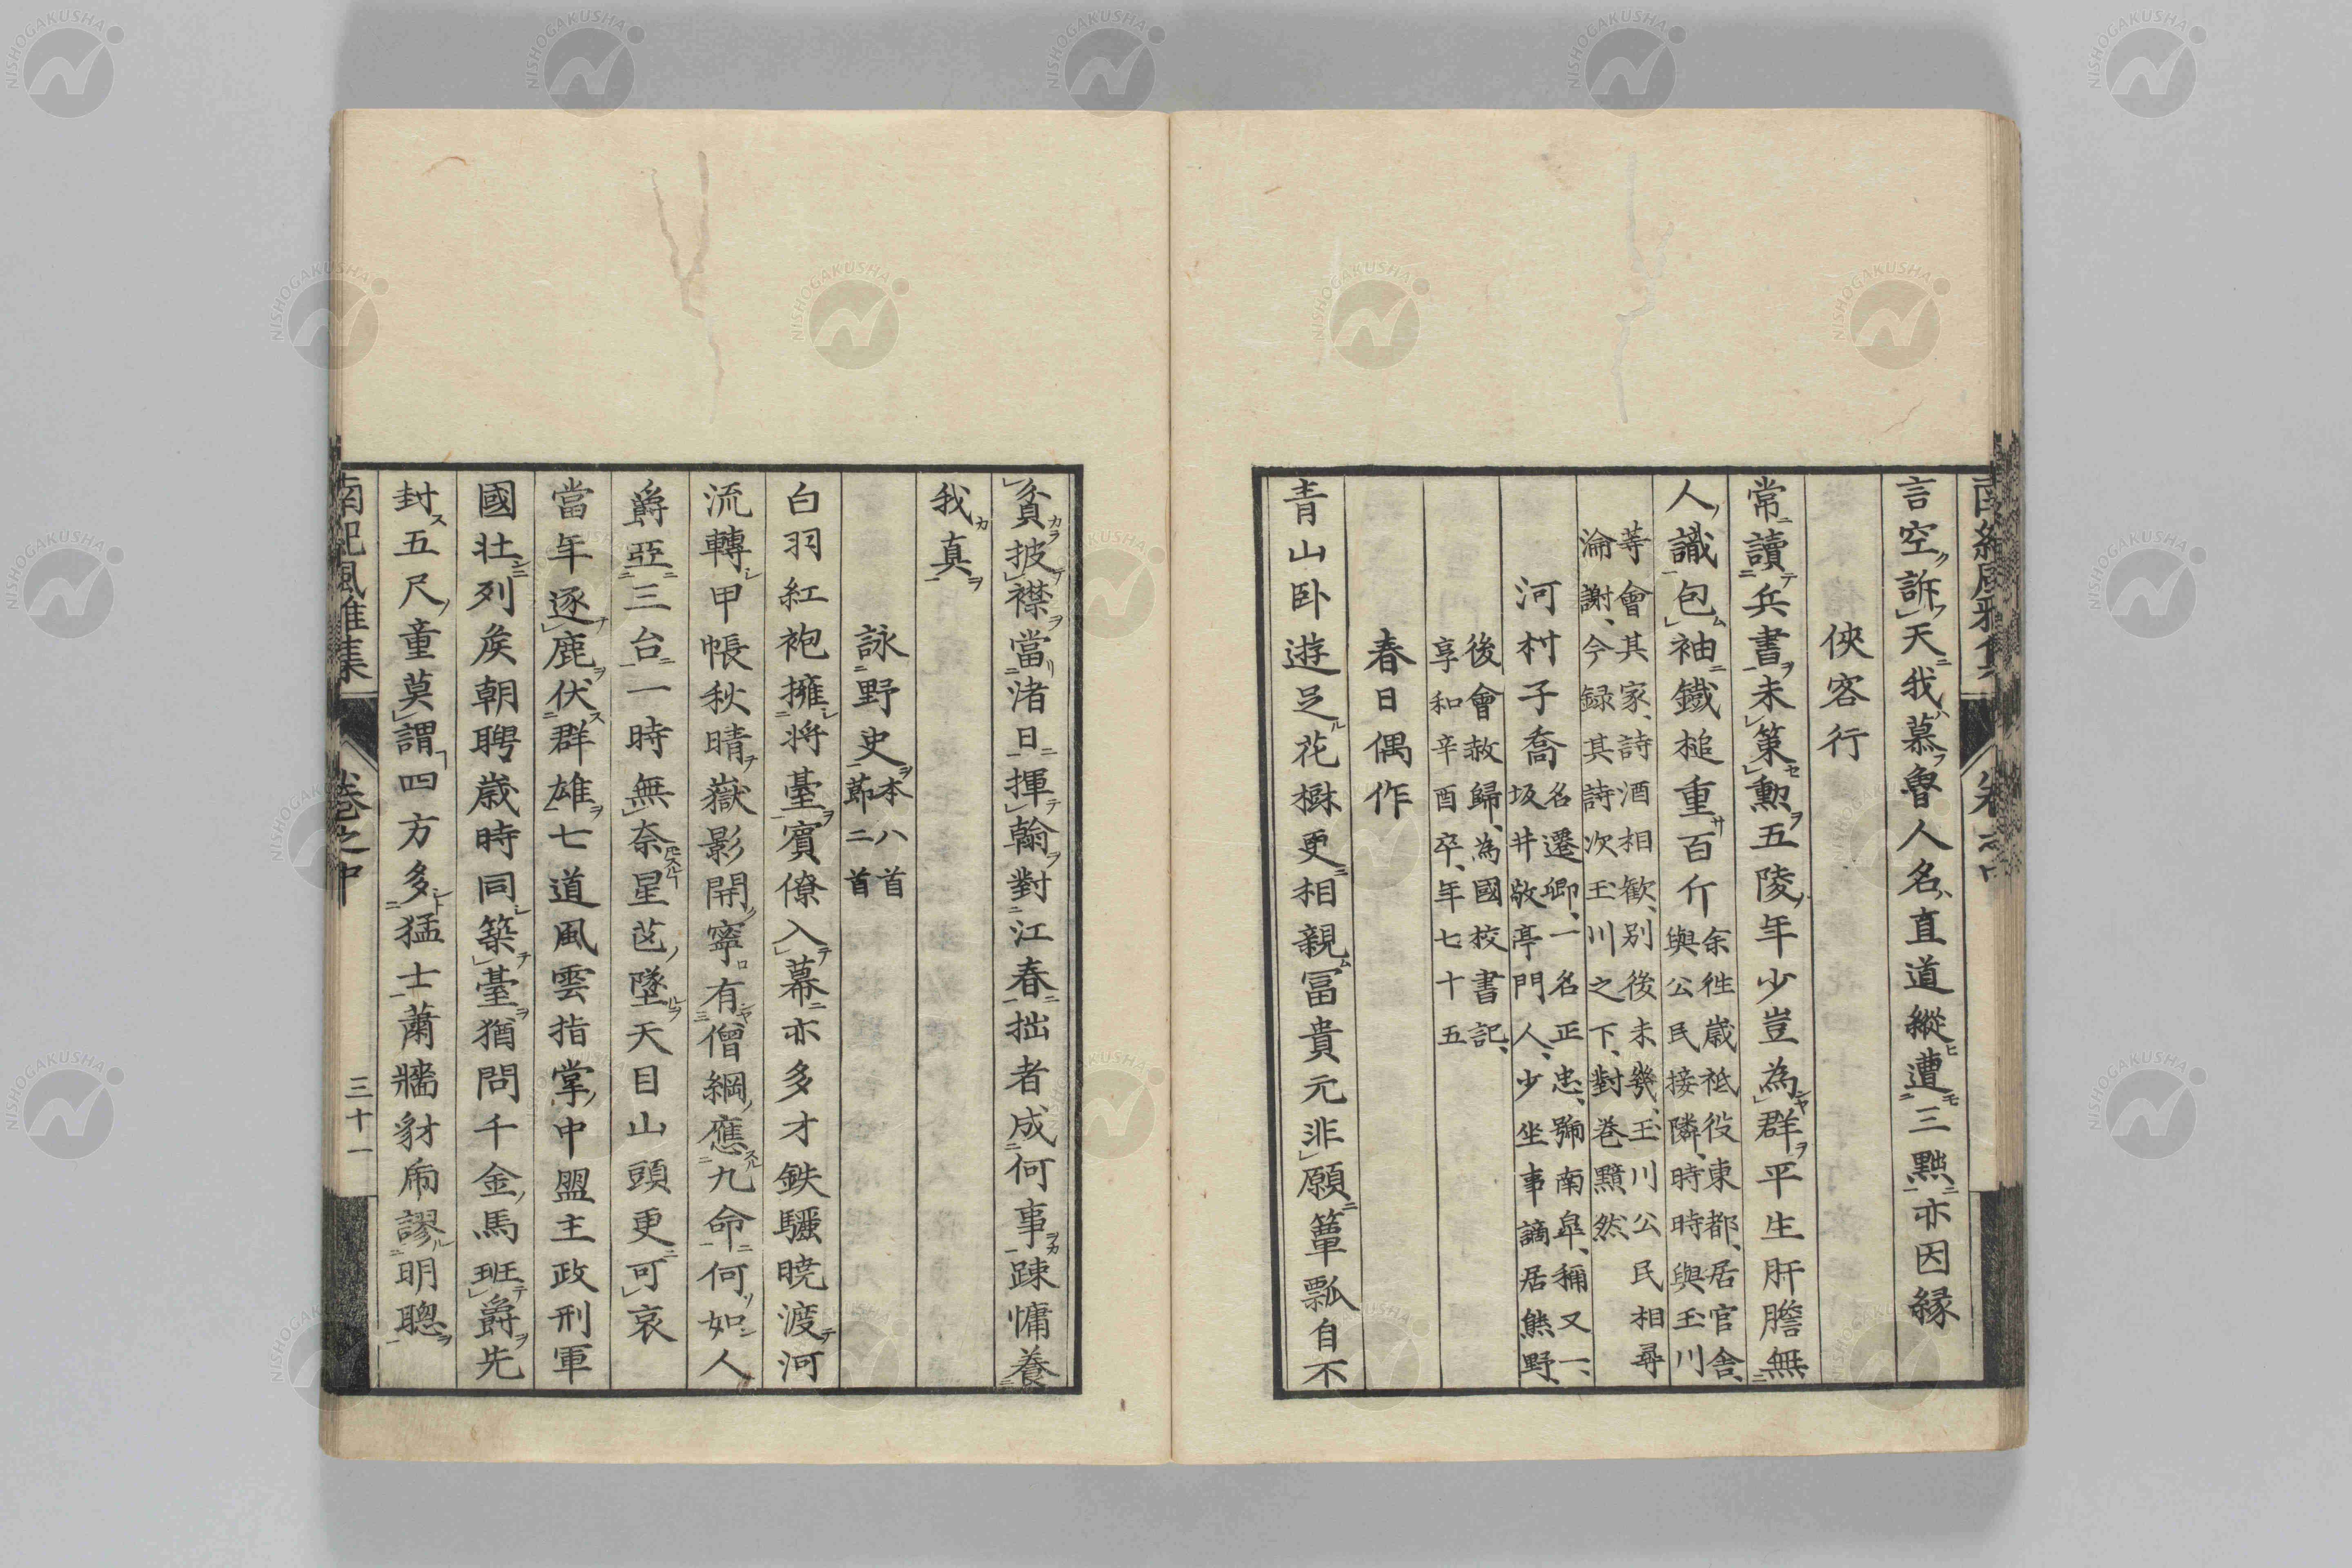 言空訴天我慕魯人名直道縱遭三黜亦因縁
俠客行
常讀兵書未策勳五陵年少豈為群平生肝膽無
人識包袖鐵槌重百斤余徃歳祗役東都、居官舎、
與公民接隣、時時與玉川
等會其家、詩酒相歓、別後未幾、玉川公民相尋
淪謝、今録其詩次玉川之下、對巻黯然
河村子喬名遷卿、一名正忠、號南皐、稱又一、
坂井敬亭門人、少坐事謫居熊野、
後會赦歸、為國校書記、
享和辛酉卒、年七十五
春日偶作
青山卧遊足花樹更相親冨貴元非願簞瓢自不
貧披襟當渚日揮翰對江春拙者成何事踈慵養
我真
詠野史本八首
節二首
白羽紅袍擁将臺賓僚入幕亦多才鉄驪暁渡河
流轉甲帳秋晴嶽影開寧有僧綱應九命何如人
爵亞三台一時無奈星芒墜天目山頭更可哀
當年逐鹿伏群雄七道風雲指掌中盟主政刑軍
國壮列矦朝聘歳時同築臺猶問千金馬班爵先
封五尺童莫謂四方多猛士蕭牆豺虎謬明聰
南紀風雅集 巻之中 三十一
NISHOGAKUSHA